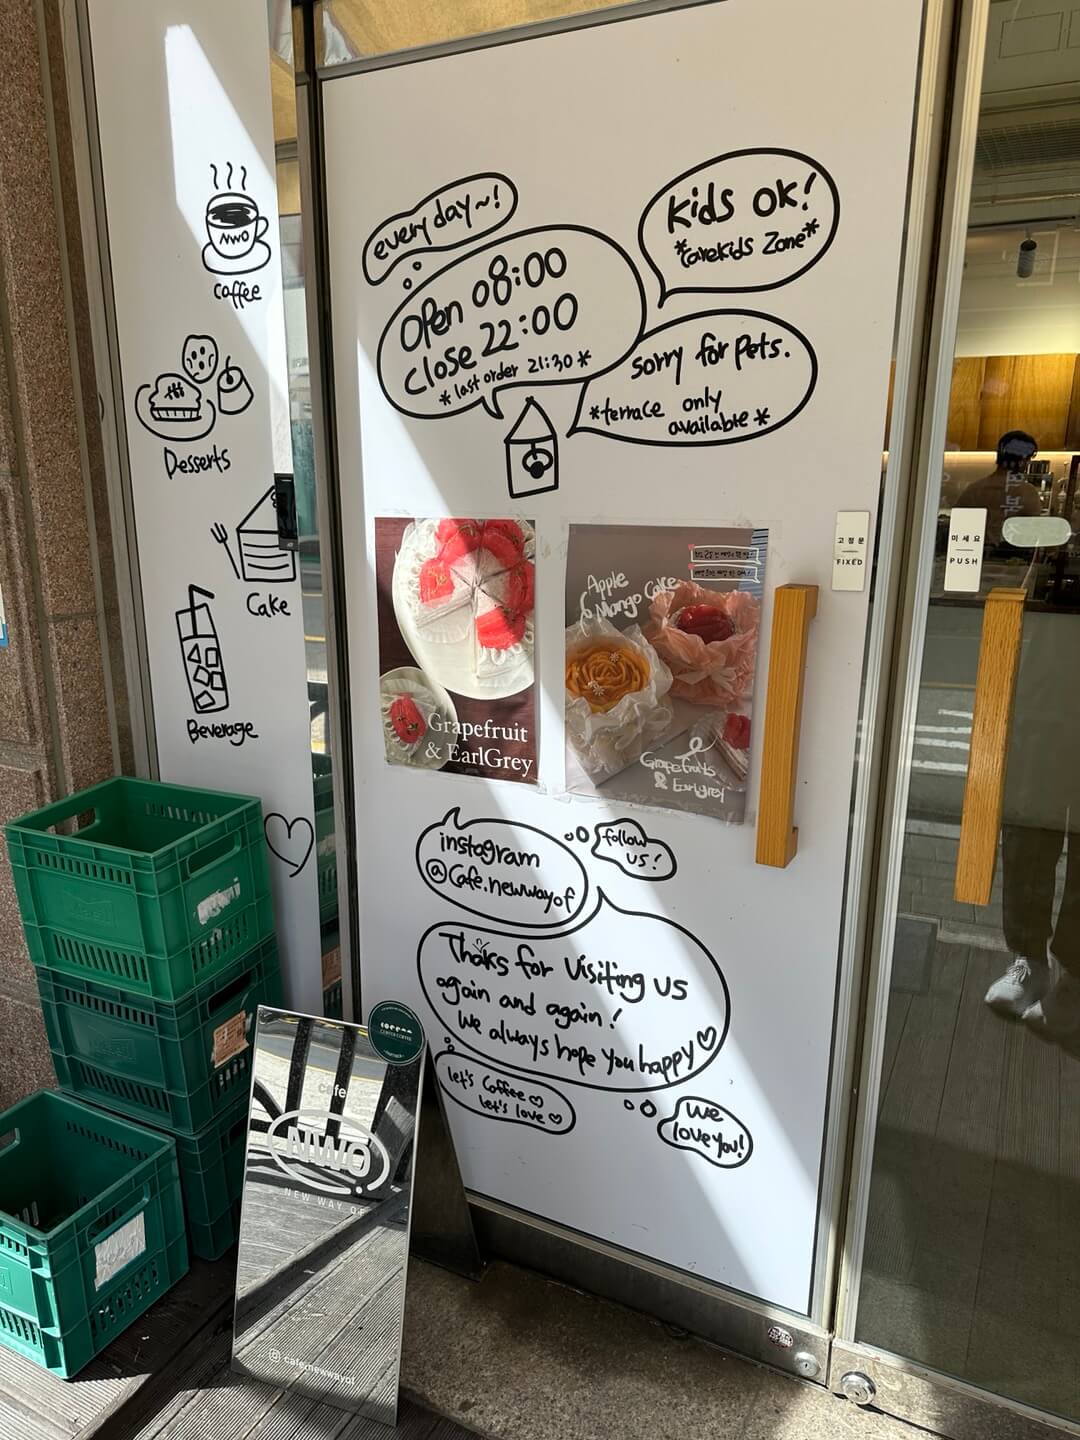 NWO
coffee
Desserts
Cake
Beverage
everyday~!
Open 08:00
close 22:00
*last order 21:30*
Kids OK!
*carekids Zone*
sorry for pets.
*terrace only
available*
고정문
FIXED
미세요
PUSH
Grapefruit
& EarlGrey
Apple
Mango Cake
Grapefruits
& Earlgrey
instagram
@Cafe.newwayof
follow
us!
Thaks for visiting us
again and again!
We always hope you happy♡
let's Coffee♡
let's love♡
We
love you!
cafe
NWO
NEW WAY OF
cafe.newwayof